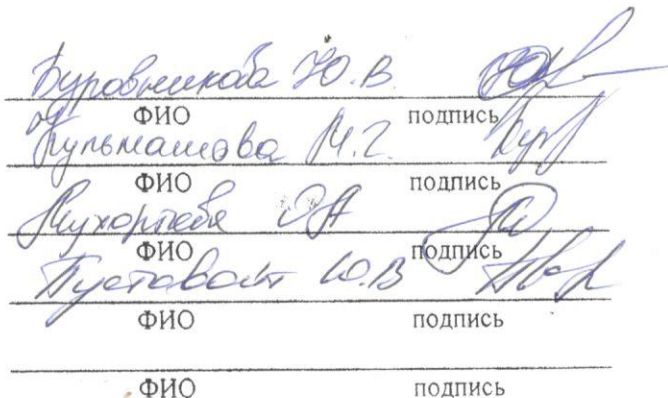 Буровникова Ю.В.
ФИО подпись
Кульмашова М.Г.
ФИО подпись
Мухортова ОА
ФИО подпись
Пустовойт Ю.В
ФИО подпись
ФИО подпись